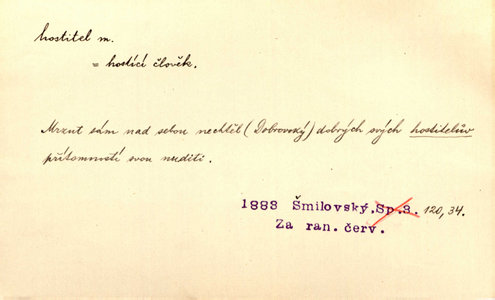 hostitel m.
= hostící člověk.
Mrzut sám nad sebou nechtěl (Dobrovský) dobrých svých hostitelův
přítomností svou nuditi.
1883 Šmilovský, Sp. 3. 120, 34.
Za ran. červ.